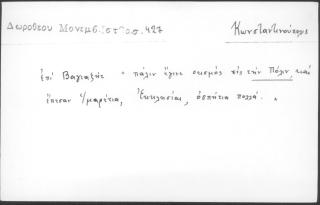 Δωροθεου Μονεμβ. Ιστορ. σ. 427
Κωνσταντινούπολις
Ἐπί Βαγιαζήτ " πάλιν ἔγινε σεισμός εἰς τήν Πόλιν, καί
ἔπεσαν ἰμαρέτια, Ἐκκλησίαι, ὁσπήτια πολλά. "